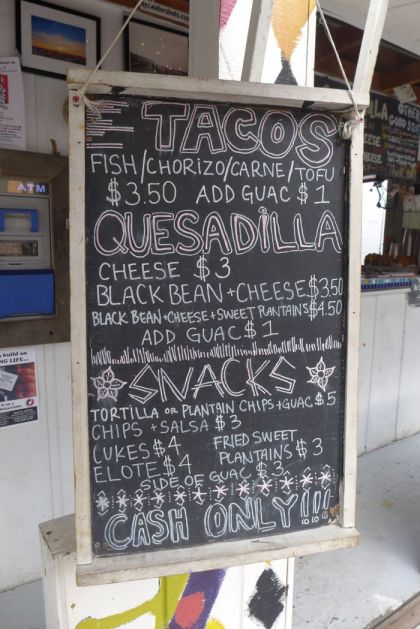 TACOS
FISH/CHORIZO/CARNE/TOFU
$3.50 ADD GUAC $1
QUESADiLLA
CHEESE $3
BLACK BEAN + CHEESE $3.50
BLACK BEAN + CHEESE + SWEET PLANTAINS $4.50
ADD GUAC $1
SNACKS
TORTILLA OR PLANTAIN CHIPS + GUAC $5
CHIPS + SALSA $3
CUKES $4
ELOTE $4
FRIED SWEET
PLANTAINS $3
SIDE OF GUAC $3
CASH ONLY!!!
ATM